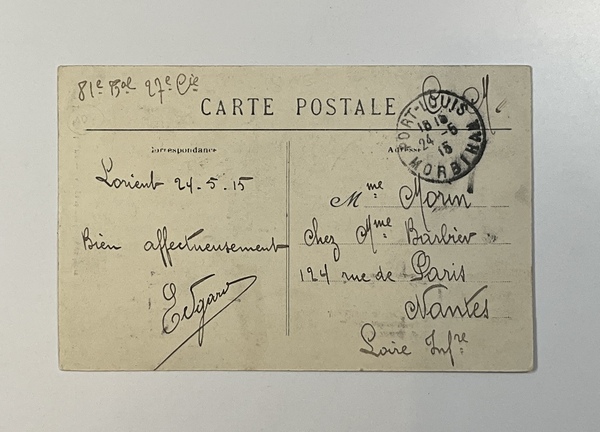 81e Bat 27e Cie
F. M.
CARTE POSTALE
PORT-LOUIS
MORBIHAN
18 15
24 -5
15
Correspondance
Adresse
Lorient 24-5.15
Bien affectueusement
Edgard
Mme Morin
Chez Mme Barbier
124 rue de Paris
Nantes
Loire Infre